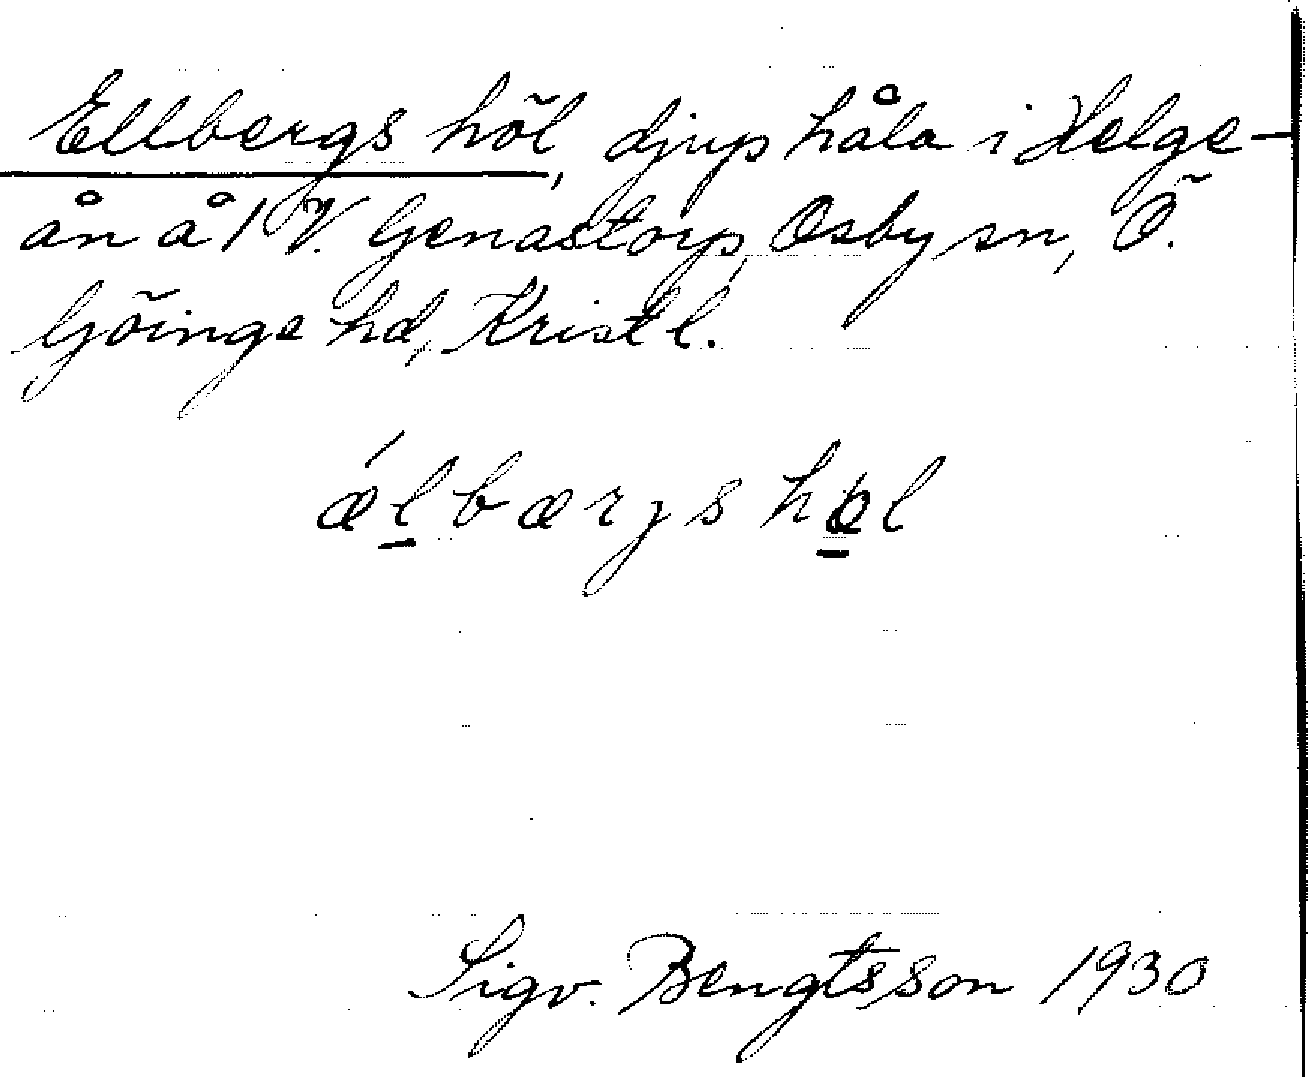 Ellbergs höl, djup håla i Helge-
ån å 1 V. Genastorp, Osby sn, Ö.
Göinge hd, Kristl.
ǽlbærjshøl
Sigv. Bengtsson 1930